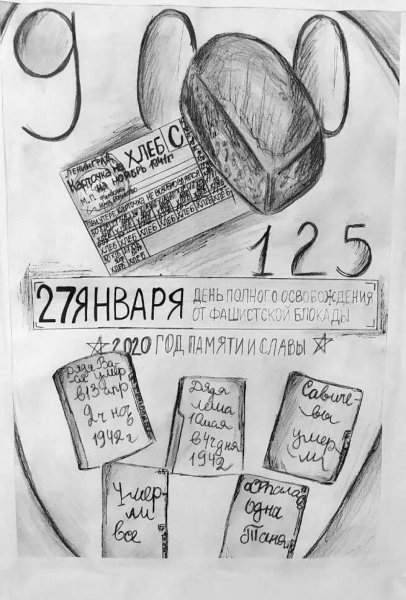 900
ЛЕНИНГРАД
Карточка на ХЛЕБ С
на ноябрь 1941г
М.П.
ПРИ УТЕРЕ КАРТОЧКА НЕ ВОЗОБНОВЛЯЕТСЯ
ХЛЕБ ХЛЕБ ХЛЕБ ХЛЕБ ХЛЕБ
125
27 ЯНВАРЯ
ДЕНЬ ПОЛНОГО ОСВОБОЖДЕНИЯ
ОТ ФАШИСТСКОЙ БЛОКАДЫ
2020 ГОД ПАМЯТИ И СЛАВЫ
Дядя Ва-
ся умер
в 13 апр
2 ч ноч
1942 г
Дядя
Лёша
10 мая
в 4ч дня
1942
Савиче-
вы
умер
ли
Умер-
ли
все
Осталась
одна
Таня